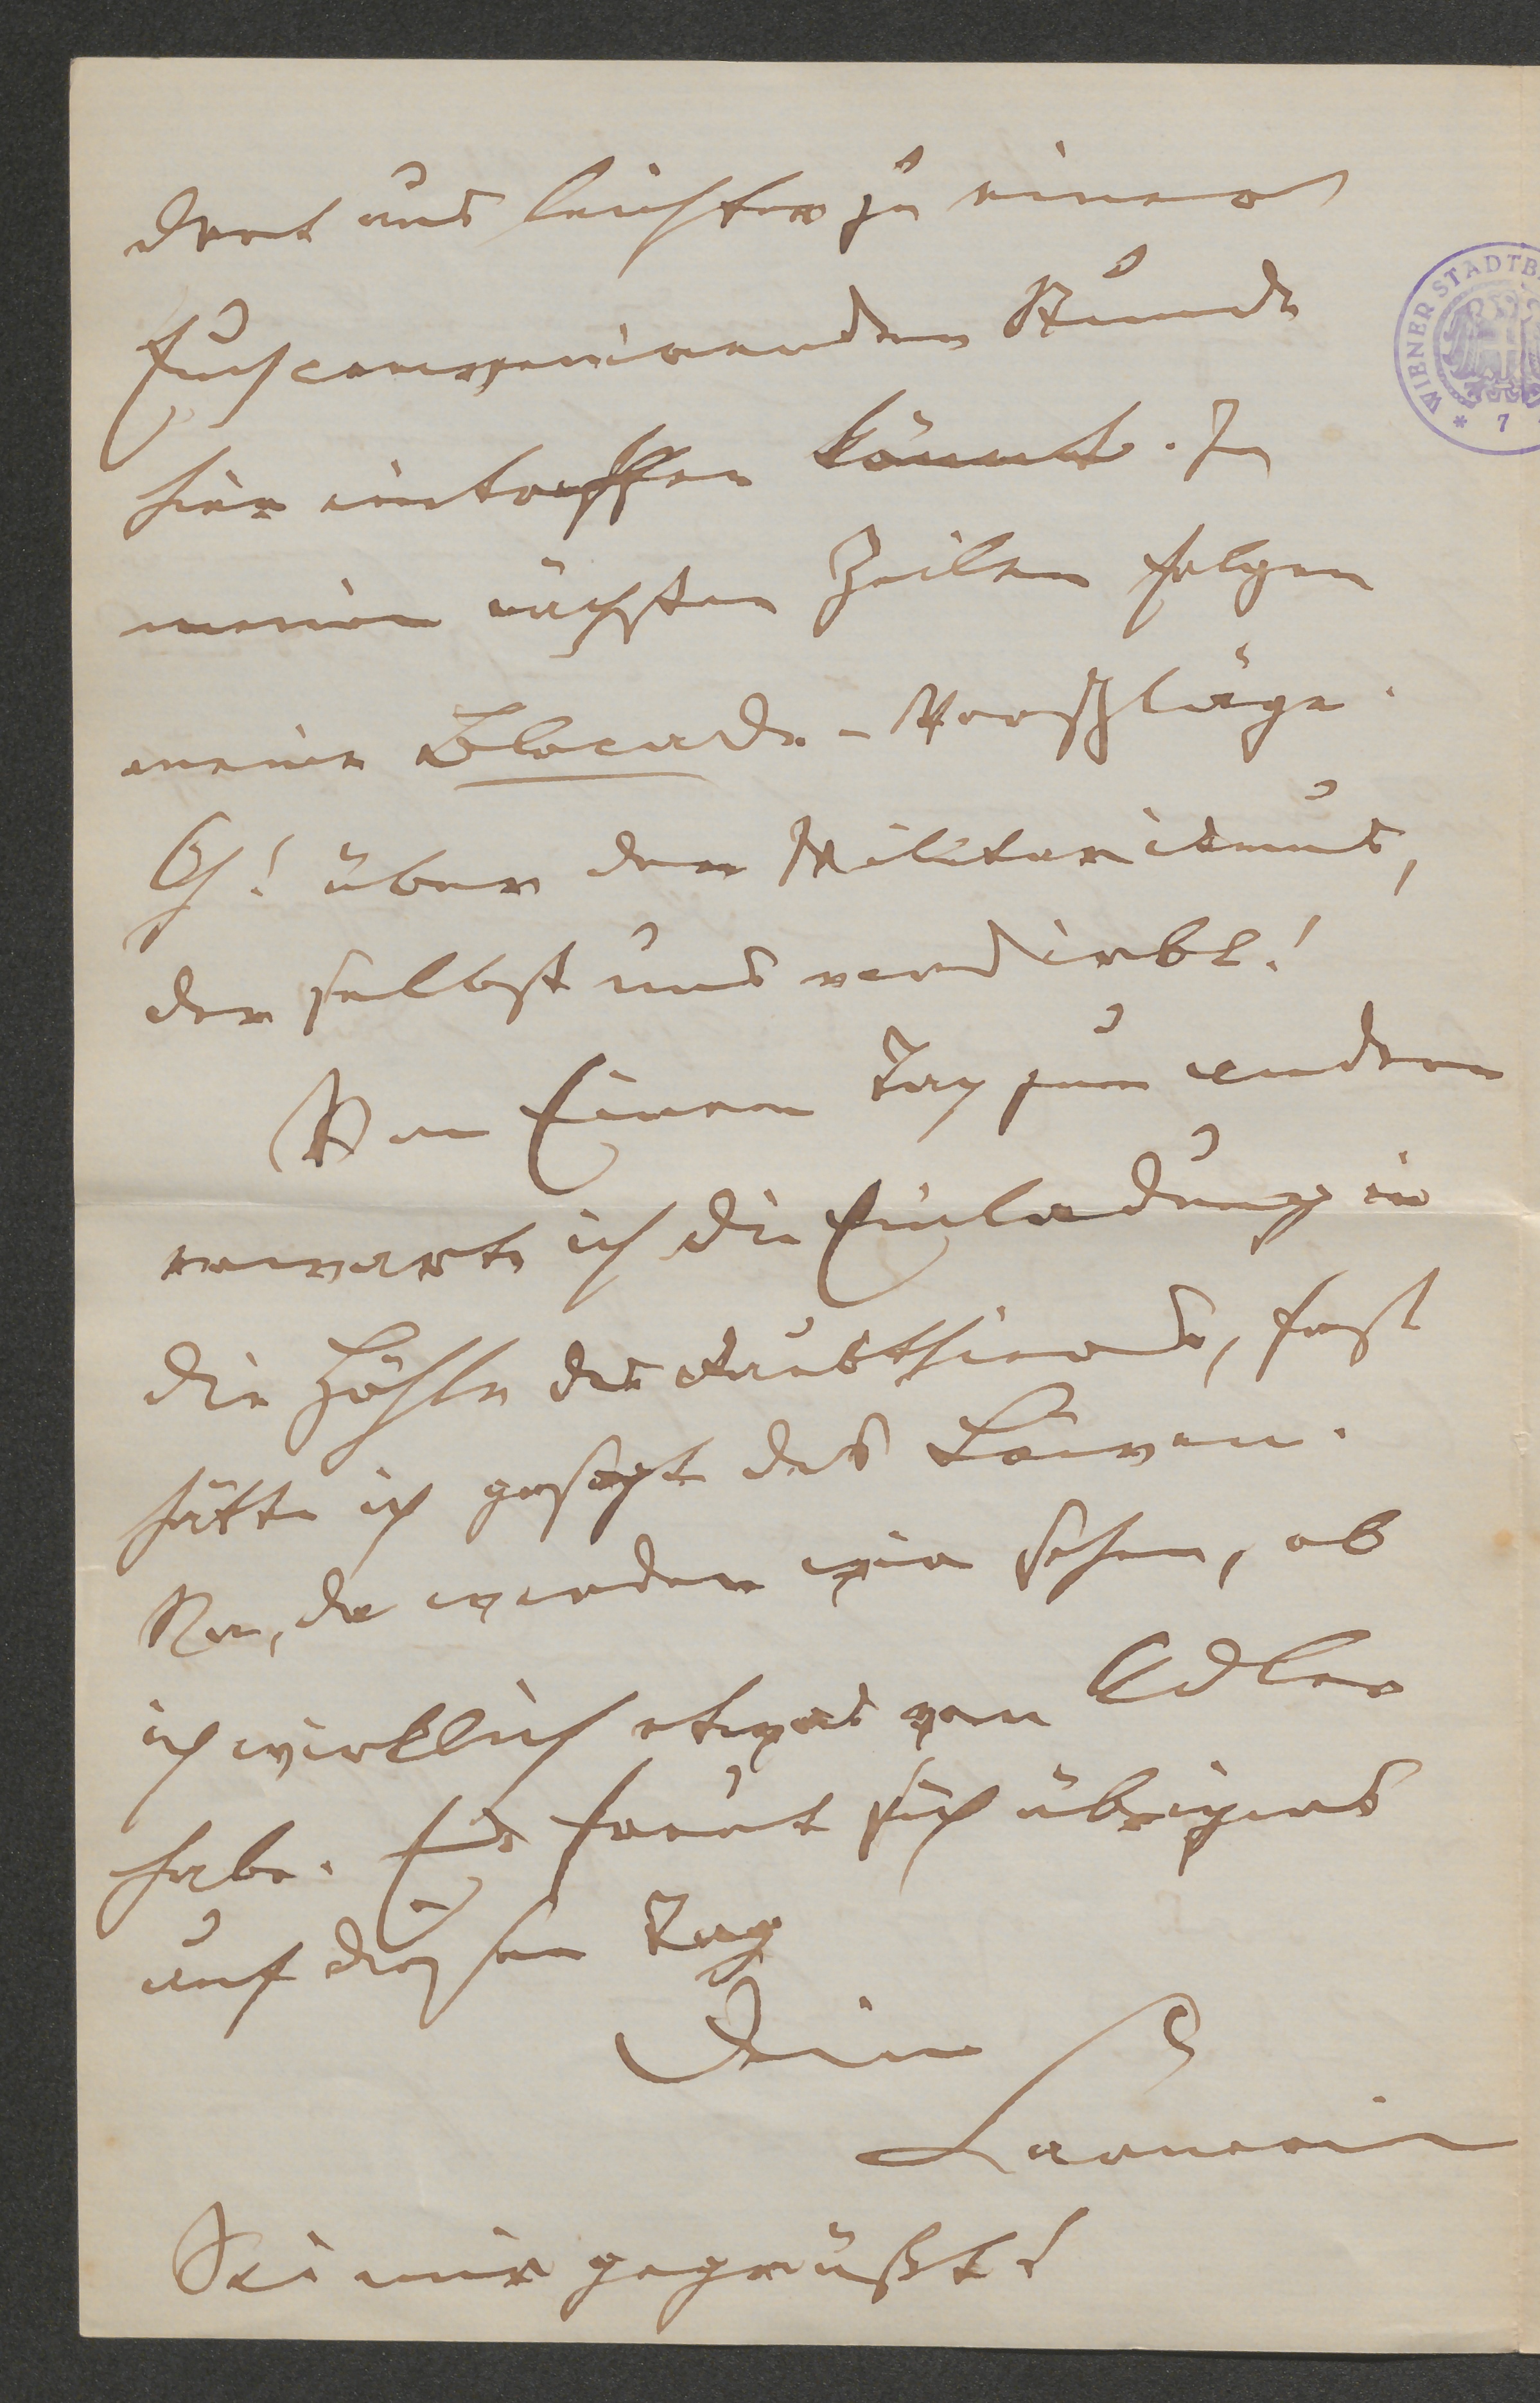 dort aus leichter zu einer
Euch convenirenden Stunde
hier eintreffen könnt. In
meinen nächsten Zeilen folgen
meine Blocade-Vorschläge.
O! über den Militarismus,
der selbst uns verdirbt!
Von Einem Tag zum andern
erwarte ich die Einladung in
die Höhle des Raubthieres, fast
hätte ich gesagt des Löwen.
Na, da werden wir sehen, ob
ich wirklich etwas vom Adler
habe. Es freut sich übrigens
auf diesen Tag
Dein
Carneri
Sei mir gegrüßt!
WIENER STADTB
* 7